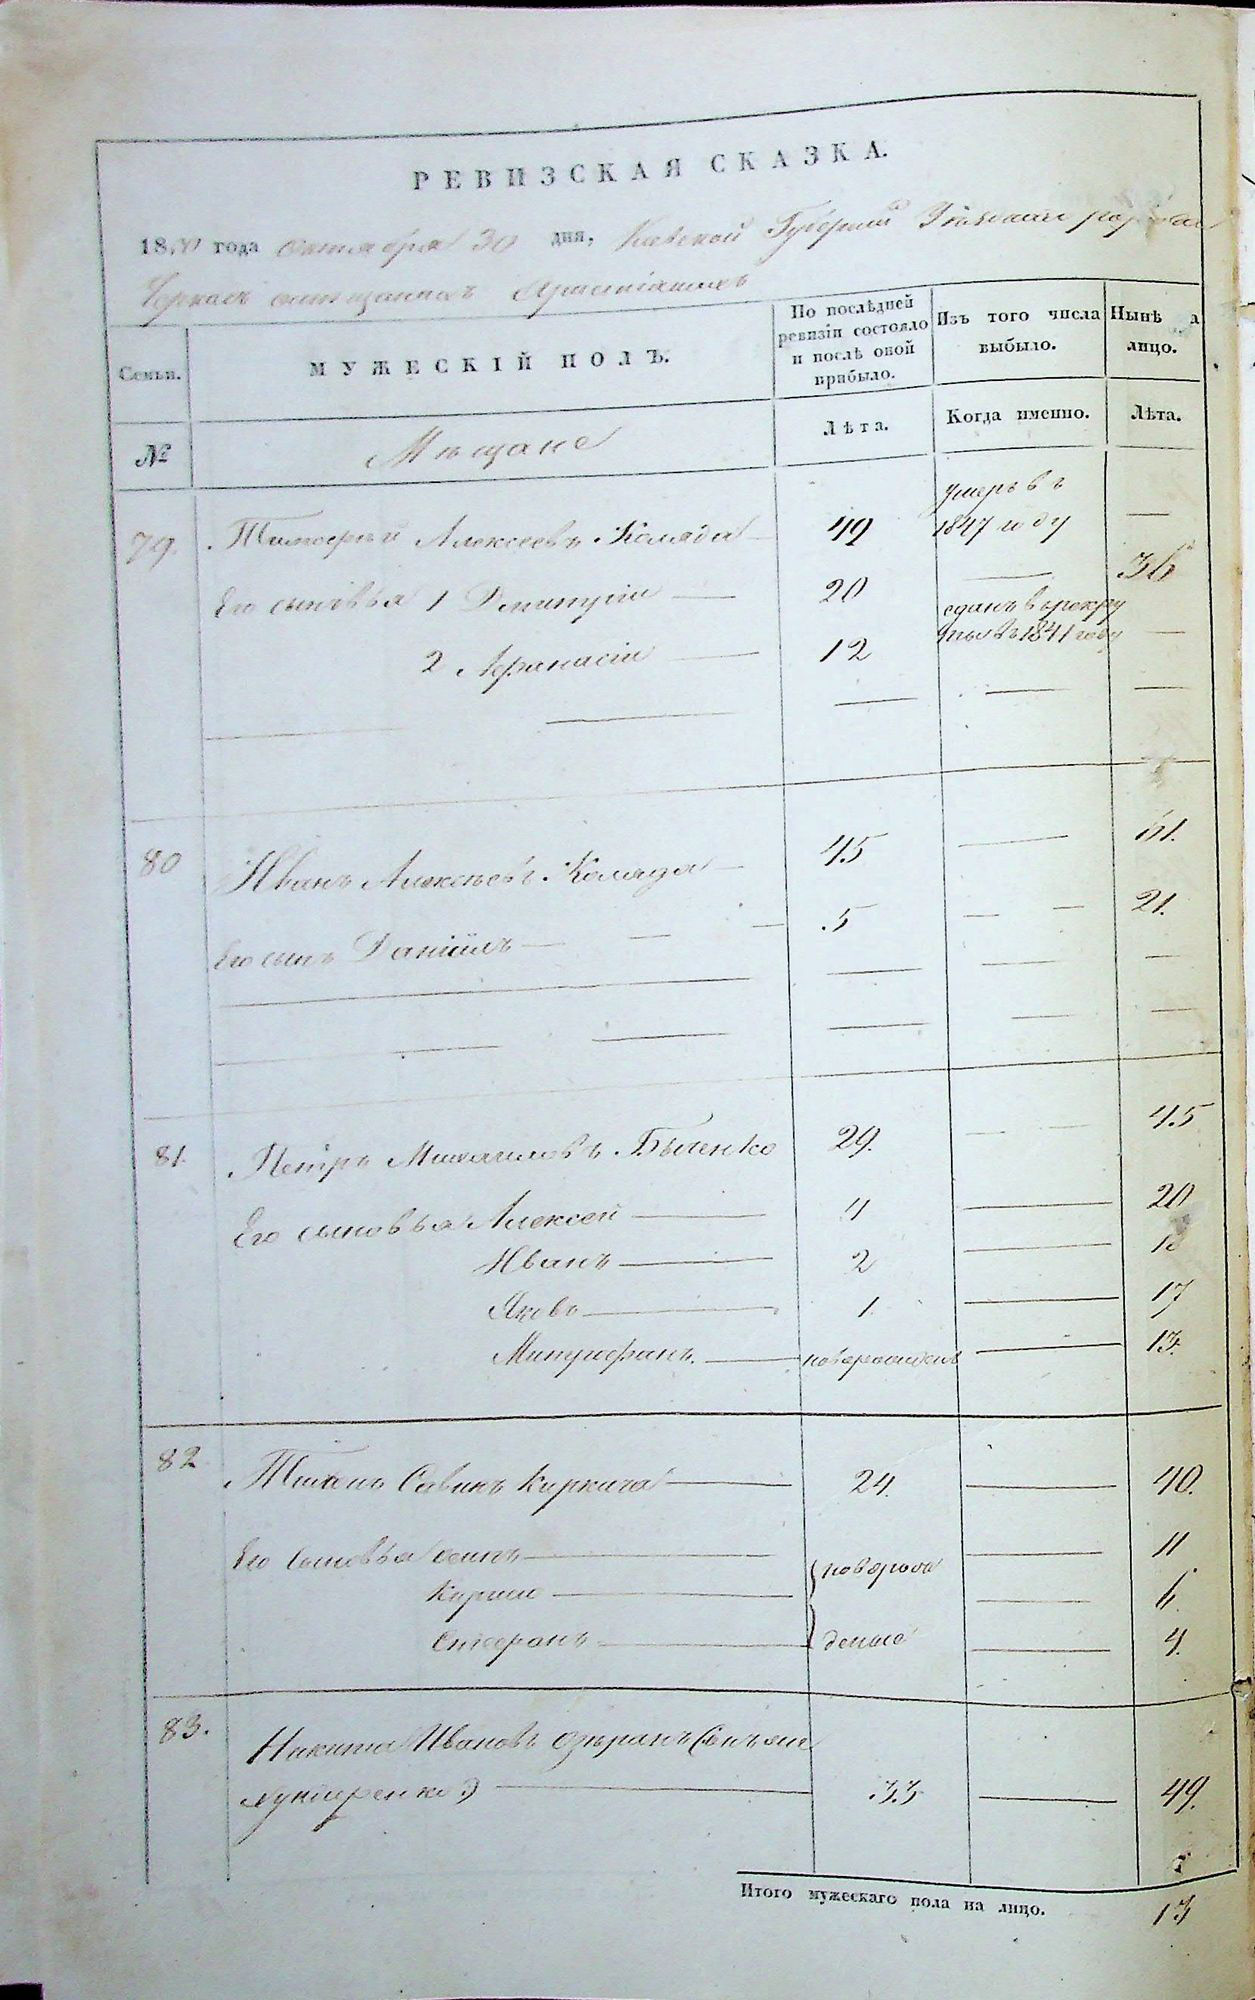 РЕВИЗСКАЯ СКАЗКА.
1850 года октября 30 дня, Киевской Губернии города
Черкасъ мещанахъ Христіанахъ
Семьи.
МУЖЕСКІЙ ПОЛЪ.
По послѣдней ревизіи состояло и послѣ оной прибыло.
Изъ того числа выбыло.
Нынѣ а лицо.
№
Мѣщане
Лѣта.
Когда именно.
Лѣта.
79. Тимофей Алексеевъ Коляда 49 умеръ въ 1847 году —
Его сыновья 1 Дмитрій — 20 — 36
2 Афанасій — 12 сданъ в рекруты въ 1841 году —
80 Иванъ Алексеевъ Коляда — 45 — 61.
Его сынъ Даніилъ — 5 — 21.
81. Петръ Михайловъ Быченко 29. — 45
Его сыновья Алексей — 4 — 20
Иванъ — 2 — 18
Яковъ — 1. — 17
Митрофанъ. — новорожденъ — 13.
82 Савинъ Киркича — 24. — 40.
Его сыновья — 11
Кирило — новорожденые — 6.
Стефанъ — 4.
83. Никита Ивановъ
33 — 49.
Итого мужескаго пола на лицо. 13